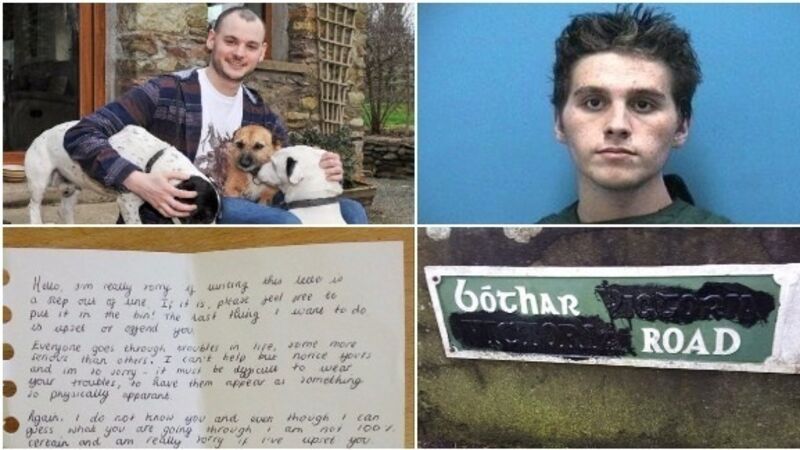 Hello, I'm really sorry if writing this letter is
a step out of line. If it is, please feel free to
put it in the bin! The last thing I want to do
is upset or offend you.
Everyone goes through troubles in life, some more
serious than others. I can't help but notice yours
and im so sorry - it must be difficult to wear
your troubles, to have them appear as something
so physically apparant.
Again, I do not know you and even though I can
guess what you are going through I am not 100%
certain and am really sorry if I've upset you.
bóthar
ROAD